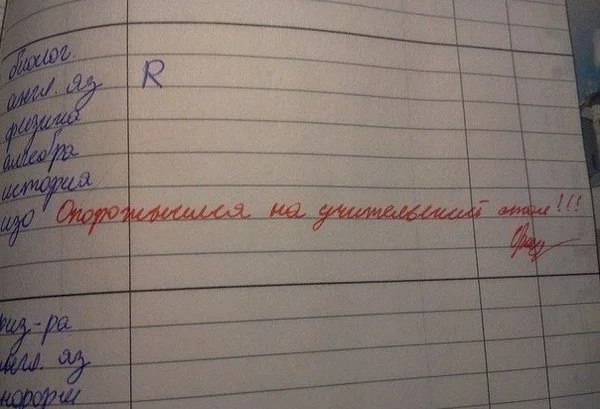 биолог.
англ. яз R
физика
алгебра
история
изо Опорожнился на учительский стол!!!
физ-ра
англ. яз